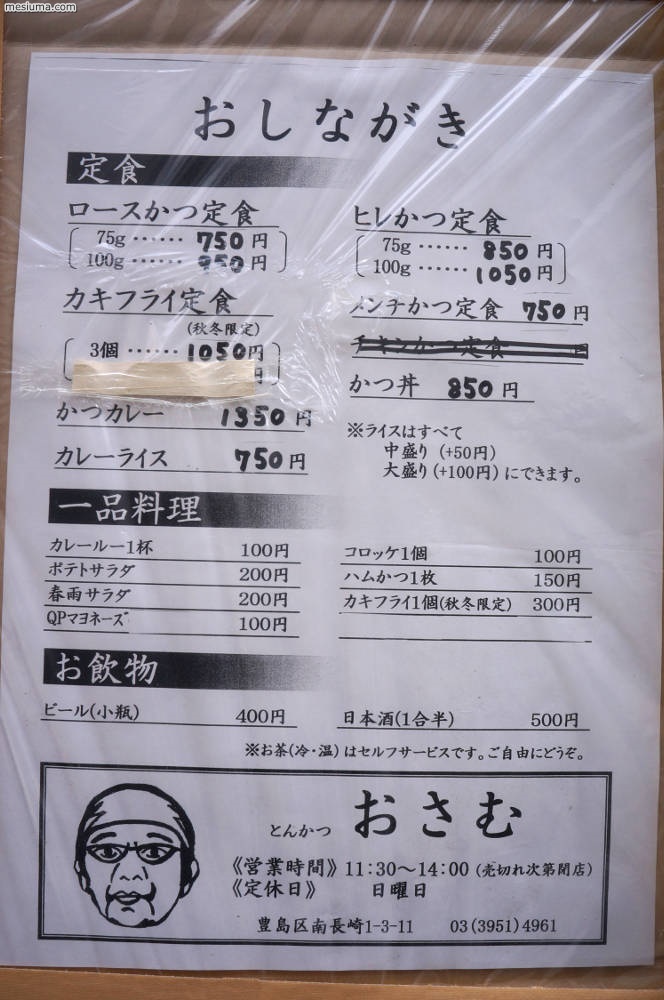 mesiuma.com
おしながき
定食
ロースかつ定食
75g ‥‥‥ 750円
100g ‥‥‥ 950円
カキフライ定食
(秋冬限定)
3個 ‥‥‥ 1050円
円
かつカレー 1350円
カレーライス 750円
ヒレかつ定食
75g ‥‥‥ 850円
100g ‥‥‥ 1050円
メンチかつ定食 750円
チキンかつ定食 円
かつ丼 850円
※ライスはすべて
中盛り (+50円)
大盛り (+100円) にできます。
一品料理
カレールー1杯 100円
ポテトサラダ 200円
春雨サラダ 200円
QPマヨネーズ 100円
コロッケ1個 100円
ハムかつ1枚 150円
カキフライ1個(秋冬限定) 300円
お飲物
ビール(小瓶) 400円
日本酒(1合半) 500円
※お茶(冷・温) はセルフサービスです。ご自由にどうぞ。
とんかつ おさむ
《営業時間》 11:30～14:00 (売切れ次第閉店)
《定休日》 日曜日
豊島区南長崎1-3-11 03(3951)4961